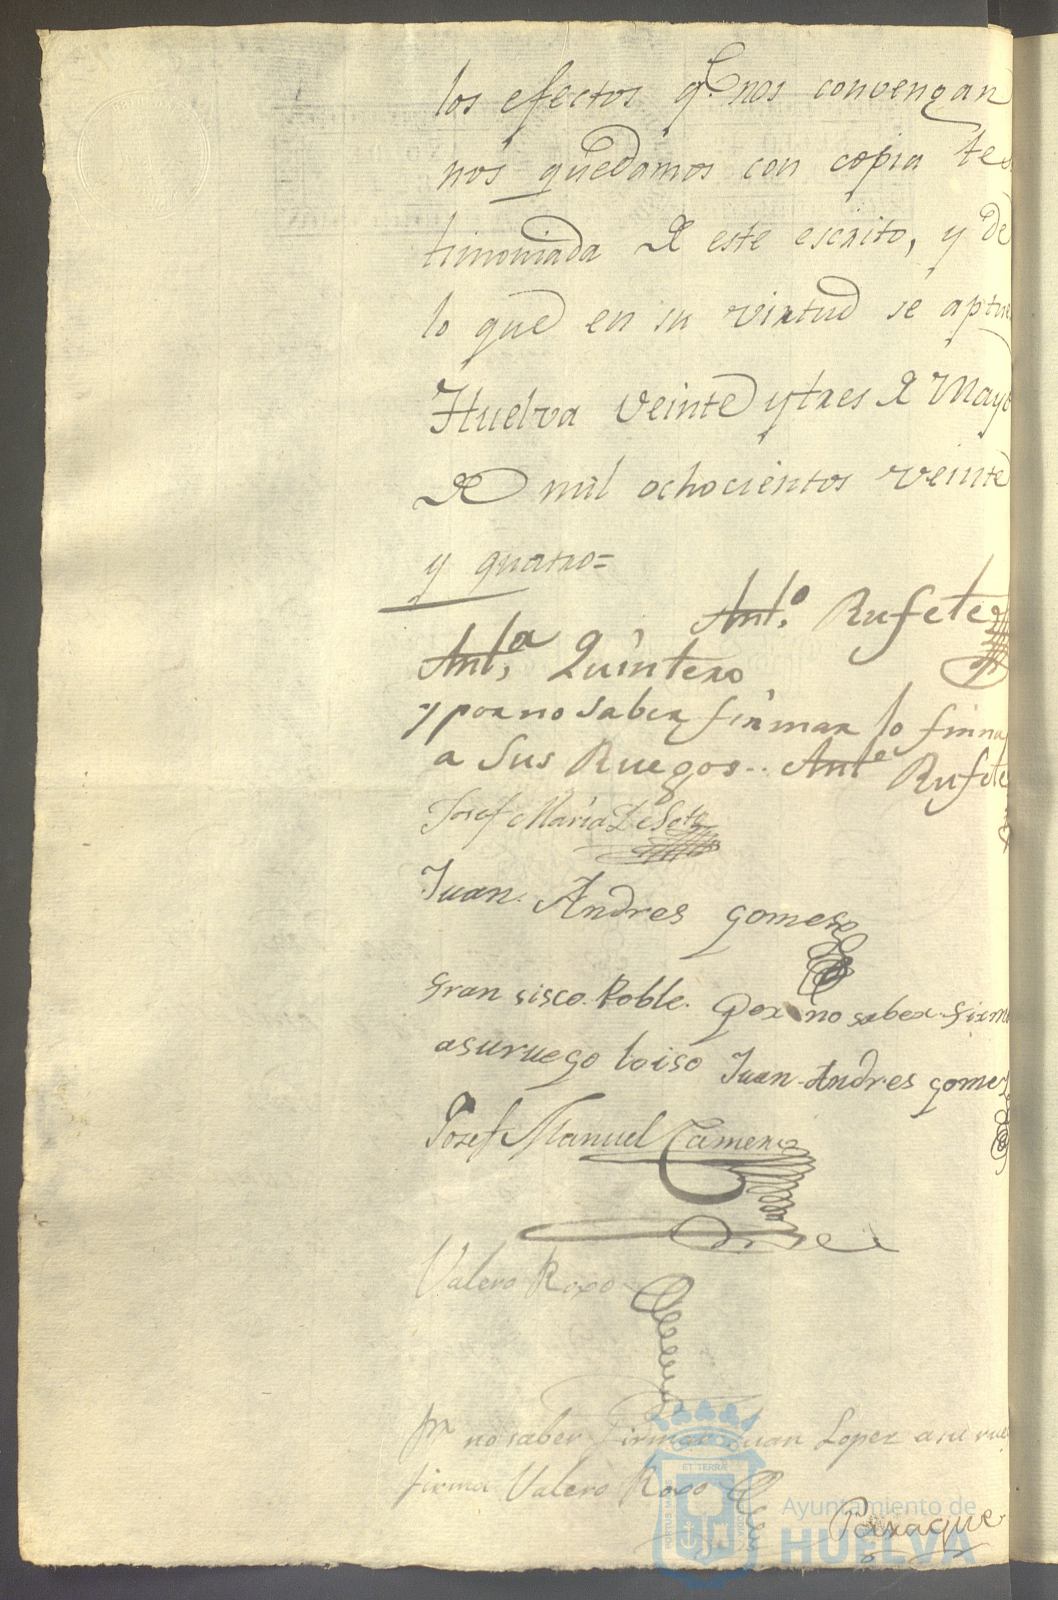 los efectos q.e nos convengan
nos quedamos con copia tes
timoniada de este escrito, y de
lo que en su virtud se aptue
Huelva veinte y tres de Mayo
de mil ochocientos veinte
y quatro=
Ant.o Rufete
Ant.a Quintero
y por no saber firmar lo firma
a Sus Ruegos.. Ant.o Rufete
Josef Maria De Soto
Juan Andres gomes
Fran sisco Roble. Por no saber firma
asuruego loiso Juan Andres gomes
Josef Manuel Camero
Valero Roxo
Pr no saber Firmar Juan Lopez a su rue
firma Valero Roxo
PORTUS MARIS ET TERRÆ CUSTODIA
Ayuntamiento de
HUELVA